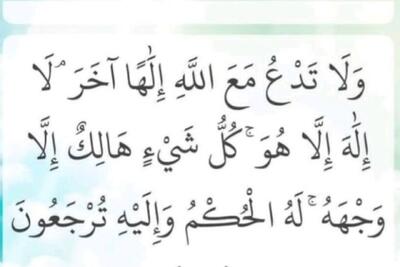 وَلَا تَدْعُ مَعَ اللَّهِ إِلَٰهًا آخَرَ ۘ لَا
إِلَٰهَ إِلَّا هُوَ ۚ كُلُّ شَيْءٍ هَالِكٌ إِلَّا
وَجْهَهُ ۚ لَهُ الْحُكْمُ وَإِلَيْهِ تُرْجَعُونَ